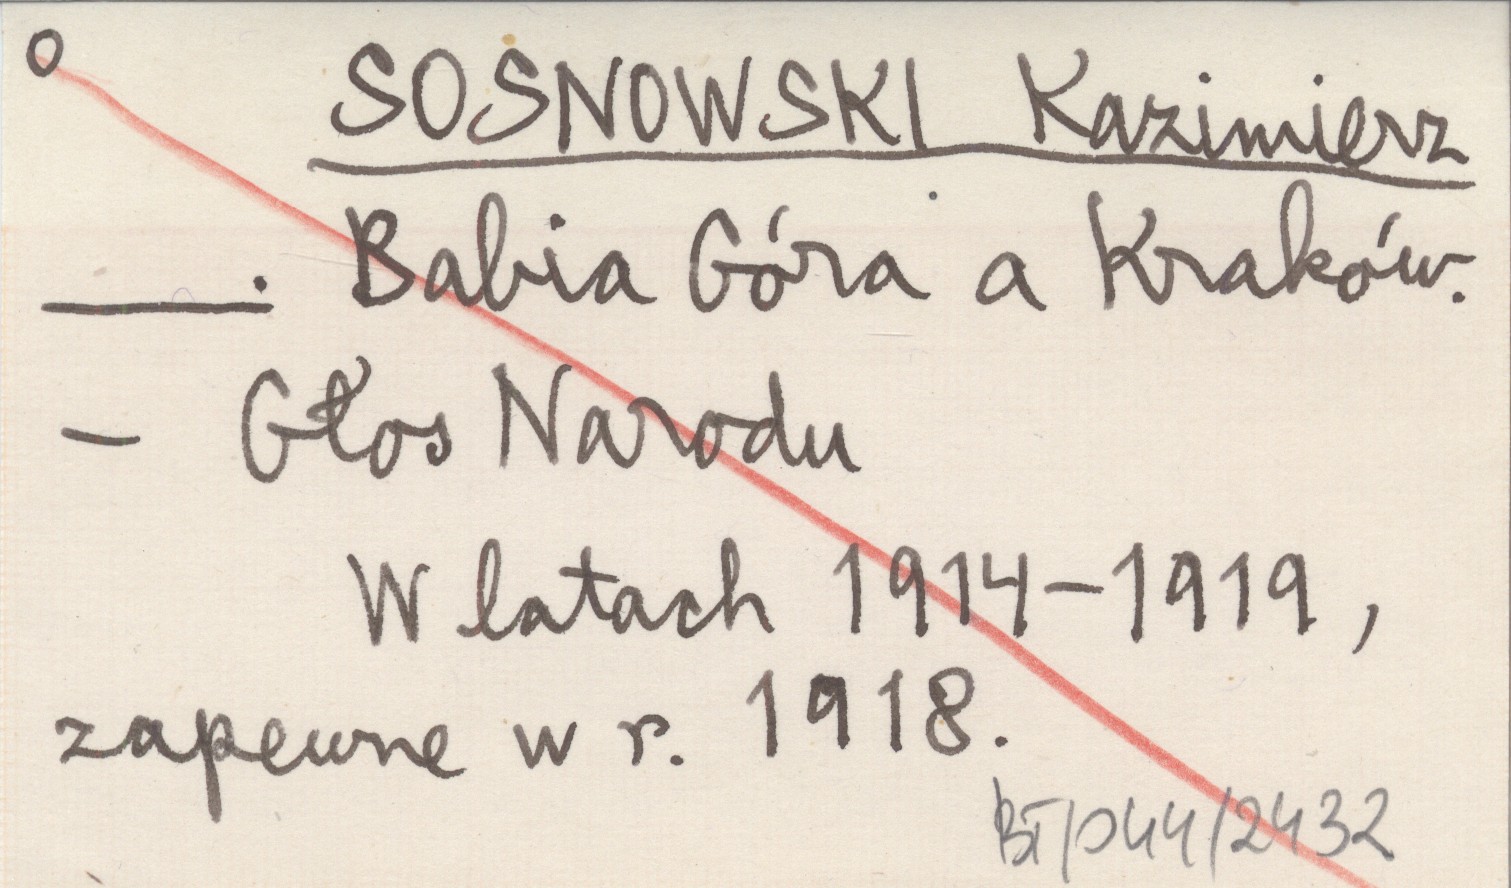 o
SOSNOWSKI Kazimierz
——. Babia Góra a Kraków.
– Głos Narodu
W latach 1914–1919,
zapewne w r. 1918.
BT/044/2432